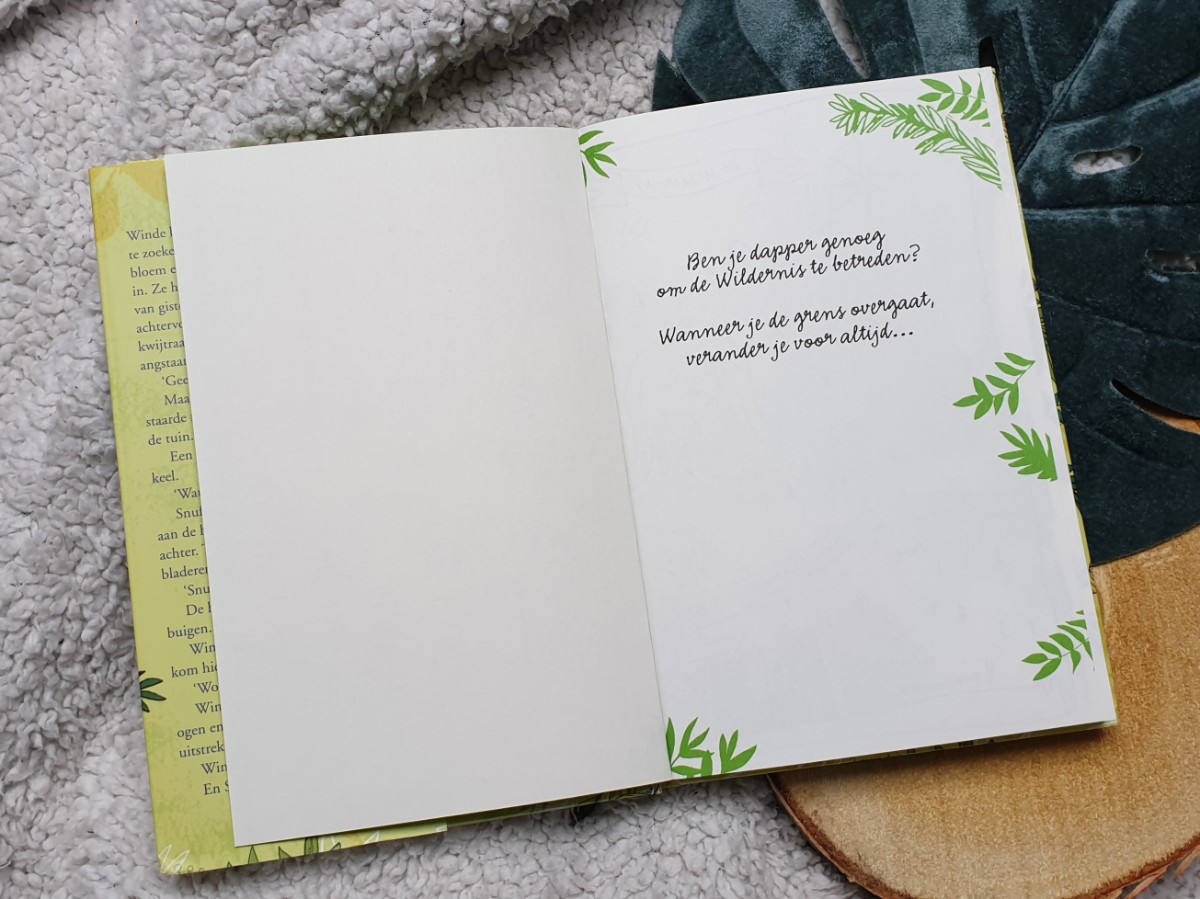 Winde
te zoeke
bloem e
in. Ze h
van gist
achterv
kwijtraa
angstaan
'Gee
Maa
staarde
de tuin.
Een
keel.
'Wa
Snuf
aan de
achter.
bladeren
'Snu
De
buigen.
Win
kom hie
'Wo
Win
ogen en
uitstrek
Win
En S
Ben je dapper genoeg
om de Wildernis te betreden?
Wanneer je de grens overgaat,
verander je voor altijd...